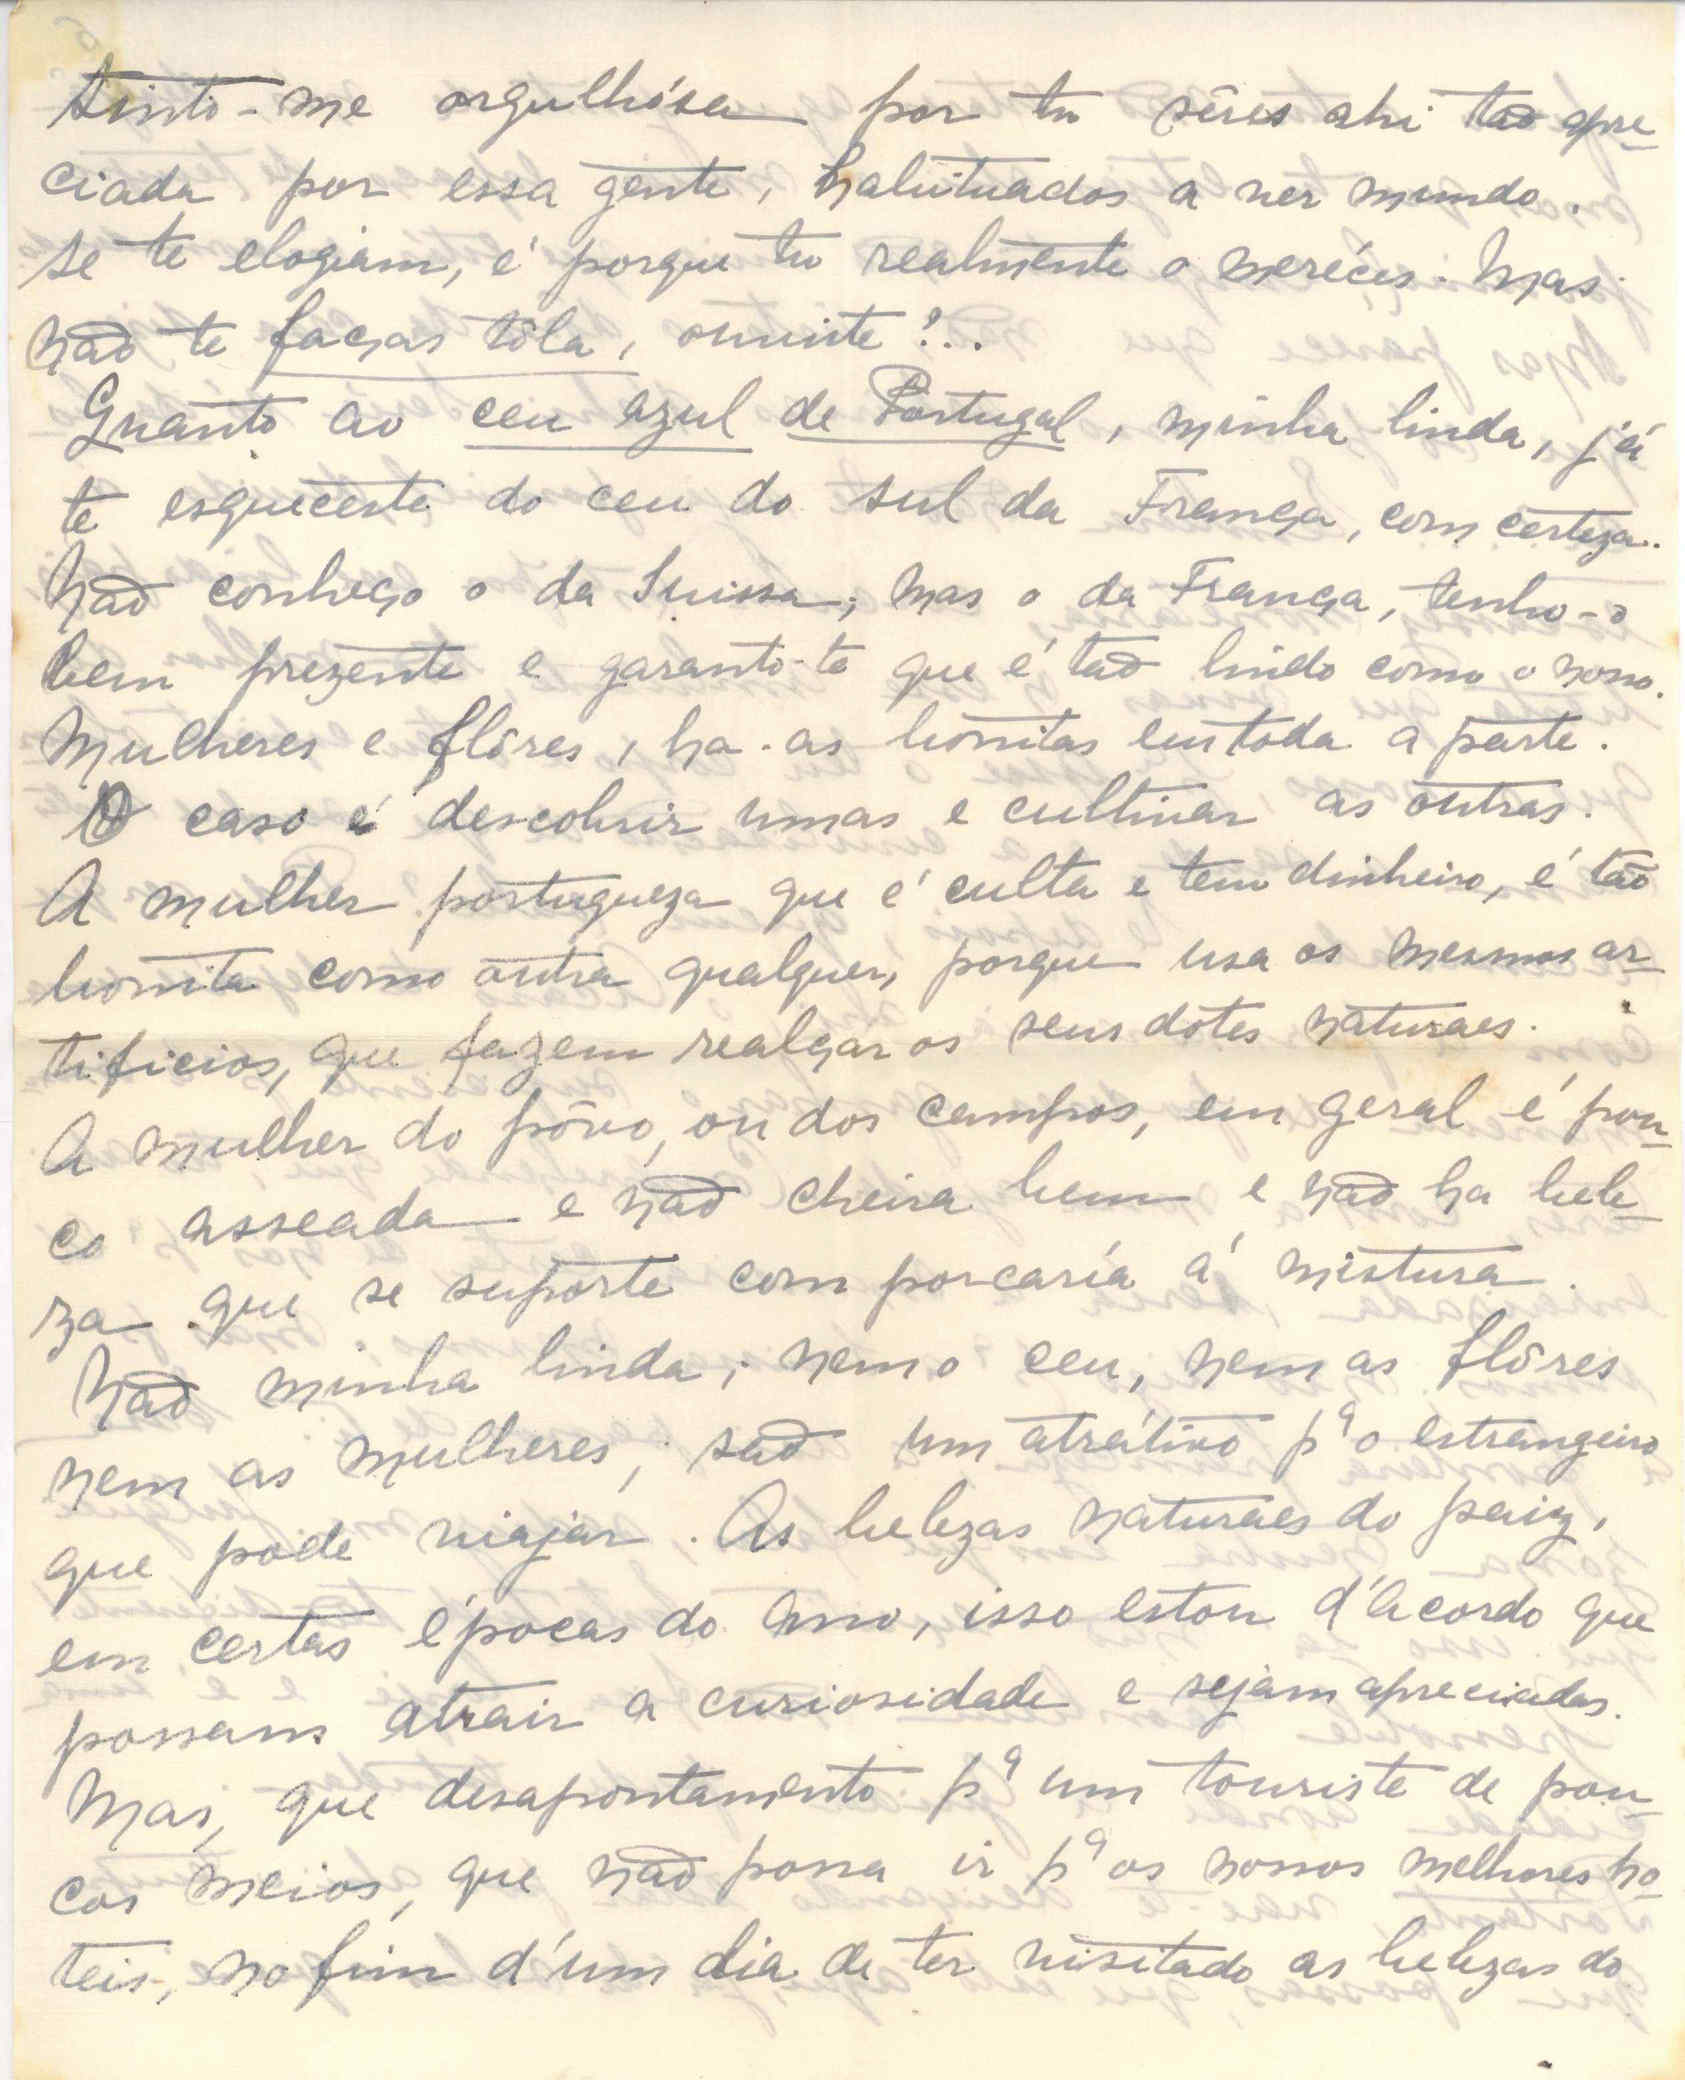 Sinto-me orgulhósa por tu sêres ahi tão apre-
ciada por essa gente, habituados a ver mundo.
Se te elogiam, é porque tu realmente o meréces. Mas
não te faças tôla, ouviste?...
Quanto ao ceu azul de Portugal, minha linda, já
te esqueceste do ceu do sul da França, com certeza.
Não conheço o da Suissa; mas o da França, tenho-o
bem prezente e garanto-te que é tão lindo como o nosso.
Mulheres e flôres, ha-as bonitas em toda a parte.
O caso é descobrir umas e cultivar as outras.
A mulher portugueza que é culta e tem dinheiro, é tão
bonita como outra qualquer, porque usa os mesmos ar-
tificios, que fazem realçar os seus dotes naturaes.
A mulher do pôvo, ou dos campos, em geral é pou-
co asseada e não cheira bem e não ha bele-
za que se suporte com porcaría á mistura.
Não minha linda; nem o ceu, nem as flôres
nem as mulheres, são um atrátivo pª o estrangeiro
que póde viajar. As belezas naturaes do paiz,
em certas épocas do ano, isso estou d'acordo que
possam atrair a curiosidade e sejam apreciadas.
Mas, que desapontamento pª um touriste de pou-
cos meios, que não possa ir pª os nossos melhores ho-
teis, no fim d'um dia de ter visitado as belezas do